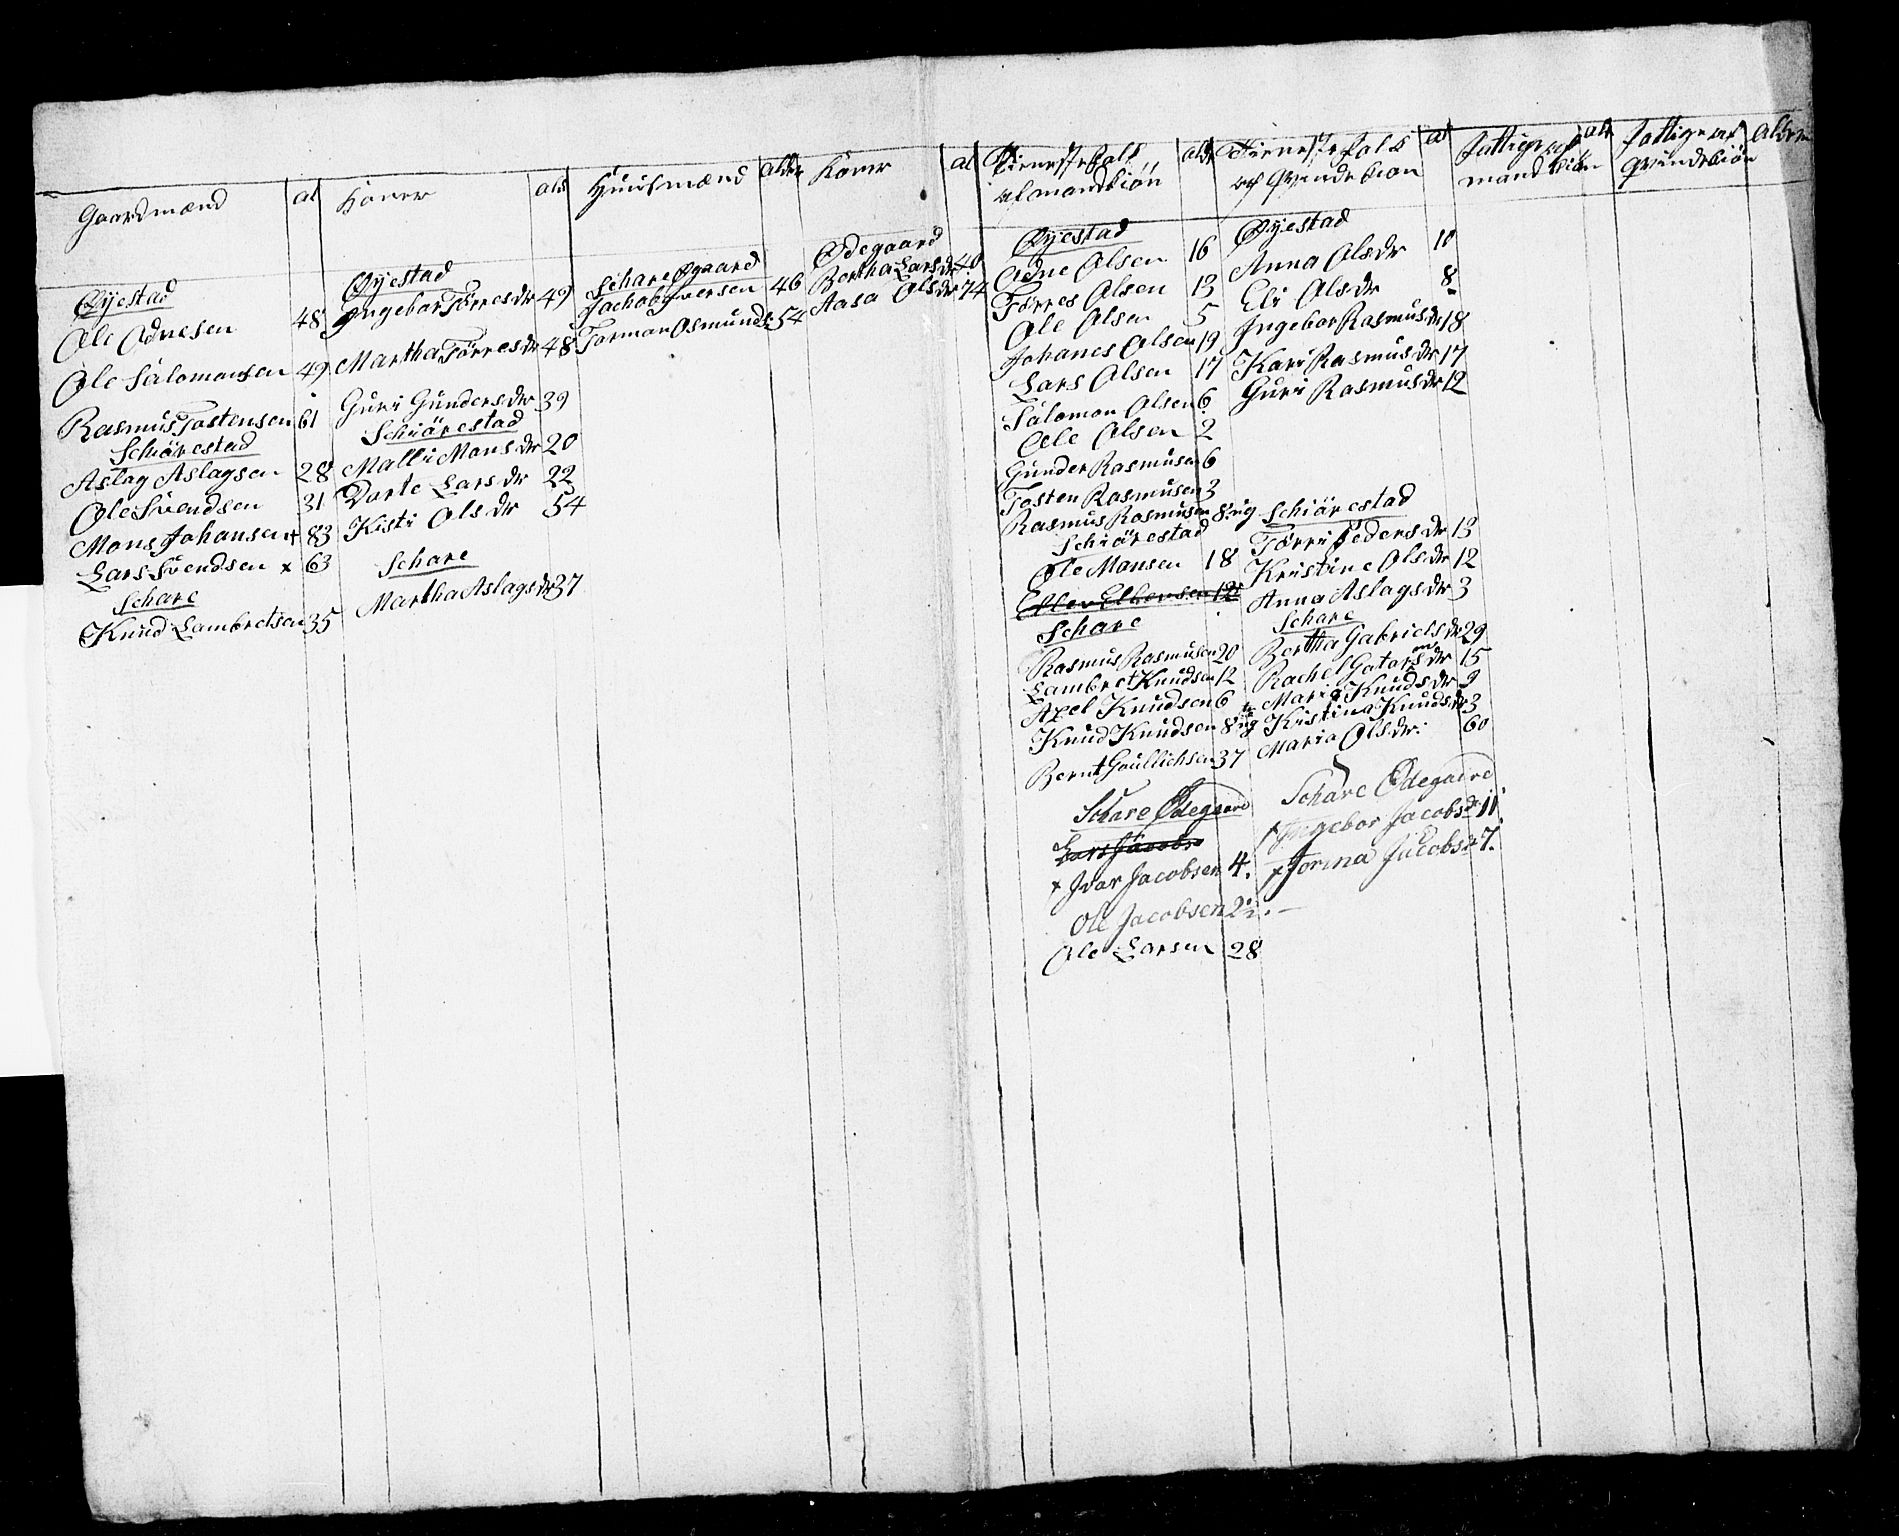 Gaardmænd
al
Koner
ald
Huusmænd
alder
Koner
al
Tienestefolk
af mandkiøn
alde
Tienestefolk
af Qvindekion
al
fattige af
mand kiøn
alde
fattige af
qvindekiøn
alder
Øyestad
Ole Adnesen 48
Ole Salomonsen 49
Rasmus Tostensen 61
Schiörestad
Aslag Aslagsen 28
Ole Svendsen 31
Mons Johansen + 83
Lars Svendsen x 63
Schare
Knud Lambretsen 35
Øyestad
Ingebor Törresdr 49
Martha Törresdr 48
Guri Gundersdr 39
Schiörestad
Malli Mons dr 20
Dorte Lars dr 22
Kisti Ols dr 54
Schare
Martha Aslagsdr 37
Schare Øgaard
Jachob Iversen 46
Tormon Osmunds 54
Ødegaard
Bertha Larsdr 40
Aasa Olsdr 74
Øyestad
Adne Olsen 16
Törres Olsen 13
Ole Olsen 5
Johanes Olsen 19
Lars Olsen 17
Salomon Olsen 6
Ole Olsen 2
Gunder Rasmusen 6
Tosten Rasmusen 3
Rasmus Rasmusen 8 ug
Schiörestad
Ole Monsen 18
Schare
Rasmus Rasmusen 20
Lambret Knudsen 12
Axel Knudsen 6
Knud Knudsen 8 ug
Bernt Goullichsen 37
Schare Ødegaard
Lars Jacobs
x Ivar Jacobsen 4.
Ole Jacobsen 2
Ole Larsen 28
Øyestad
Anna Olsdr 10
Eli Olsdr 8
Ingebor Rasmusdr 18
Kari Rasmusdr 17
Guri Rasmusdr 12
Schiörestad
Törri Pedersdr 13
Kristine Olsdr 12
Anna Aslagsdr 3
Schare
Bertha Gabrielsdr 29
Rachel Gatorsdr 15
Maria Knudsdr 9
Kristina Knudsdr 3
Maria Olsdr. 60
Schare Ødegaard
x Ingebor Jacobsdr 11
x Jorina Jacobsdr 7.